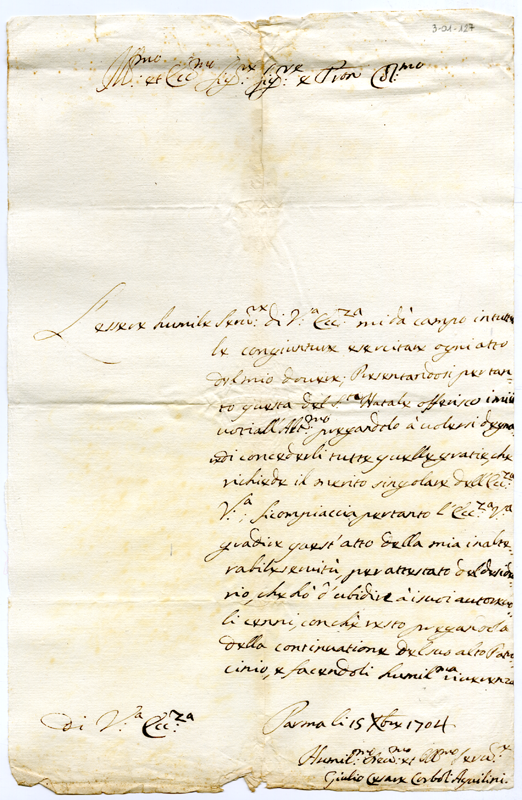 3-01-127
Ill.mo et Ecc.mo Sig.re Sig.re e Pron Col.mo
L'essere humile Serv.re di V.ra Ecc.za mi dà campo in tutte
le congiunture esercitare ogni atto
del mio dovere; Presentandosi pertan-
to questa del S.to Natale offerisco i miei
voti all'Alt.mo pregandolo à volersi degna-
re di concederli tutte quelle gratie, che
richiede il merito singolare dell'Ecc.za
V.ra; si compiaccia pertanto l'Ecc.za V.ra
gradire quest'atto della mia inalte-
rabile servitù per attestato del deside-
rio, che hò d'ubidire à i suoi autorevo-
li cenni, con che resto pregandola
della continuatione del suo alto Patro-
cinio, e facendoli humil.ma riverenza
di V.ra Ecc.za
Parma li 15 Xbre 1704
Humil.mo et Serv.re
Giulio Cesare Corboli Aquilini